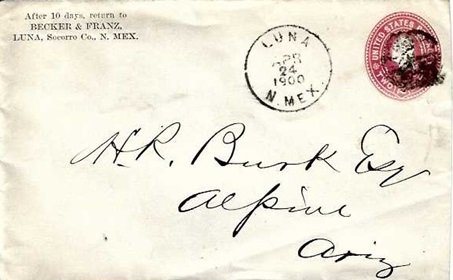 After 10 days, return to
BECKER & FRANZ,
LUNA, Socorro Co., N. MEX.
LUNA
APR
24
1900
N. MEX.
UNITED STATES
TWO
H. R. Burk Esq
Alpine
Ariz